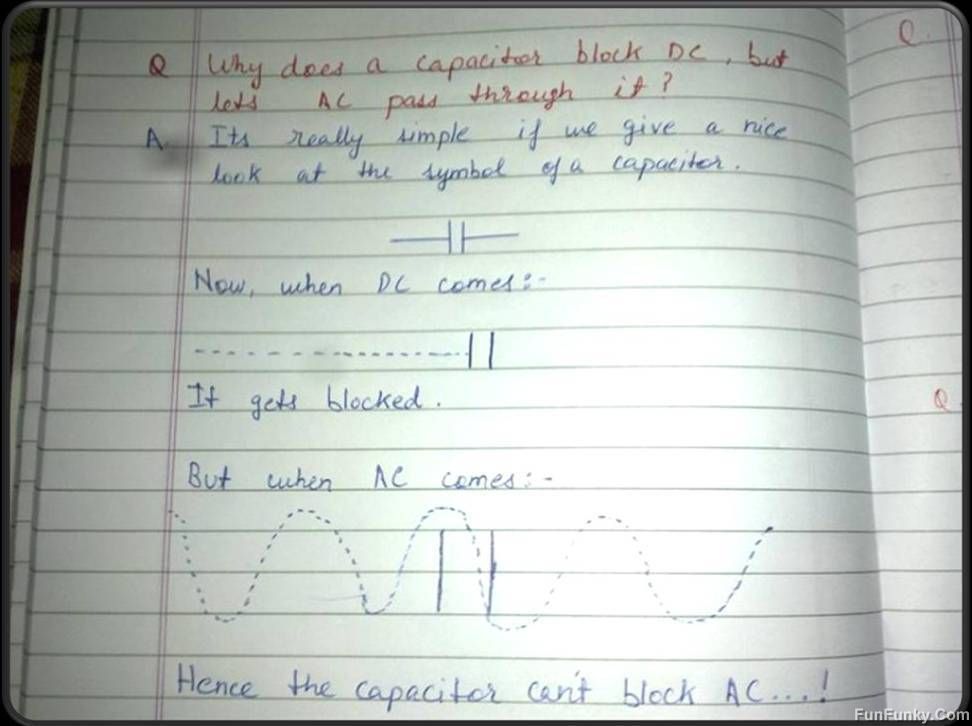 Q Why does a capacitor block DC, but
lets AC pass through it?
A. Its really simple if we give a nice
look at the symbol of a capacitor.
Now, when DC comes:-
It gets blocked.
But when AC comes:-
Hence the capacitor can't block AC...!
Q.
Q.
FunFunky.Com